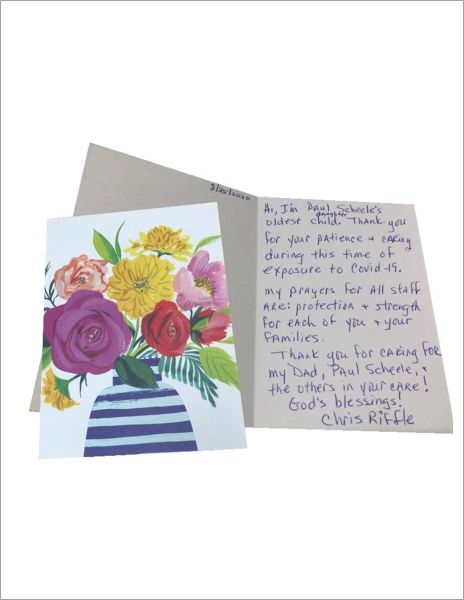 8/25/2020
Hi, I'm Paul Scheele's
daughter
oldest child. Thank you
for your patience + caring
during this time of
exposure to Covid-19.
my prayers for All staff
are: protection + strength
for each of you + your
families.
Thank you for caring for
my Dad, Paul Scheele, +
the others in your care!
God's blessings!
Chris Riffle